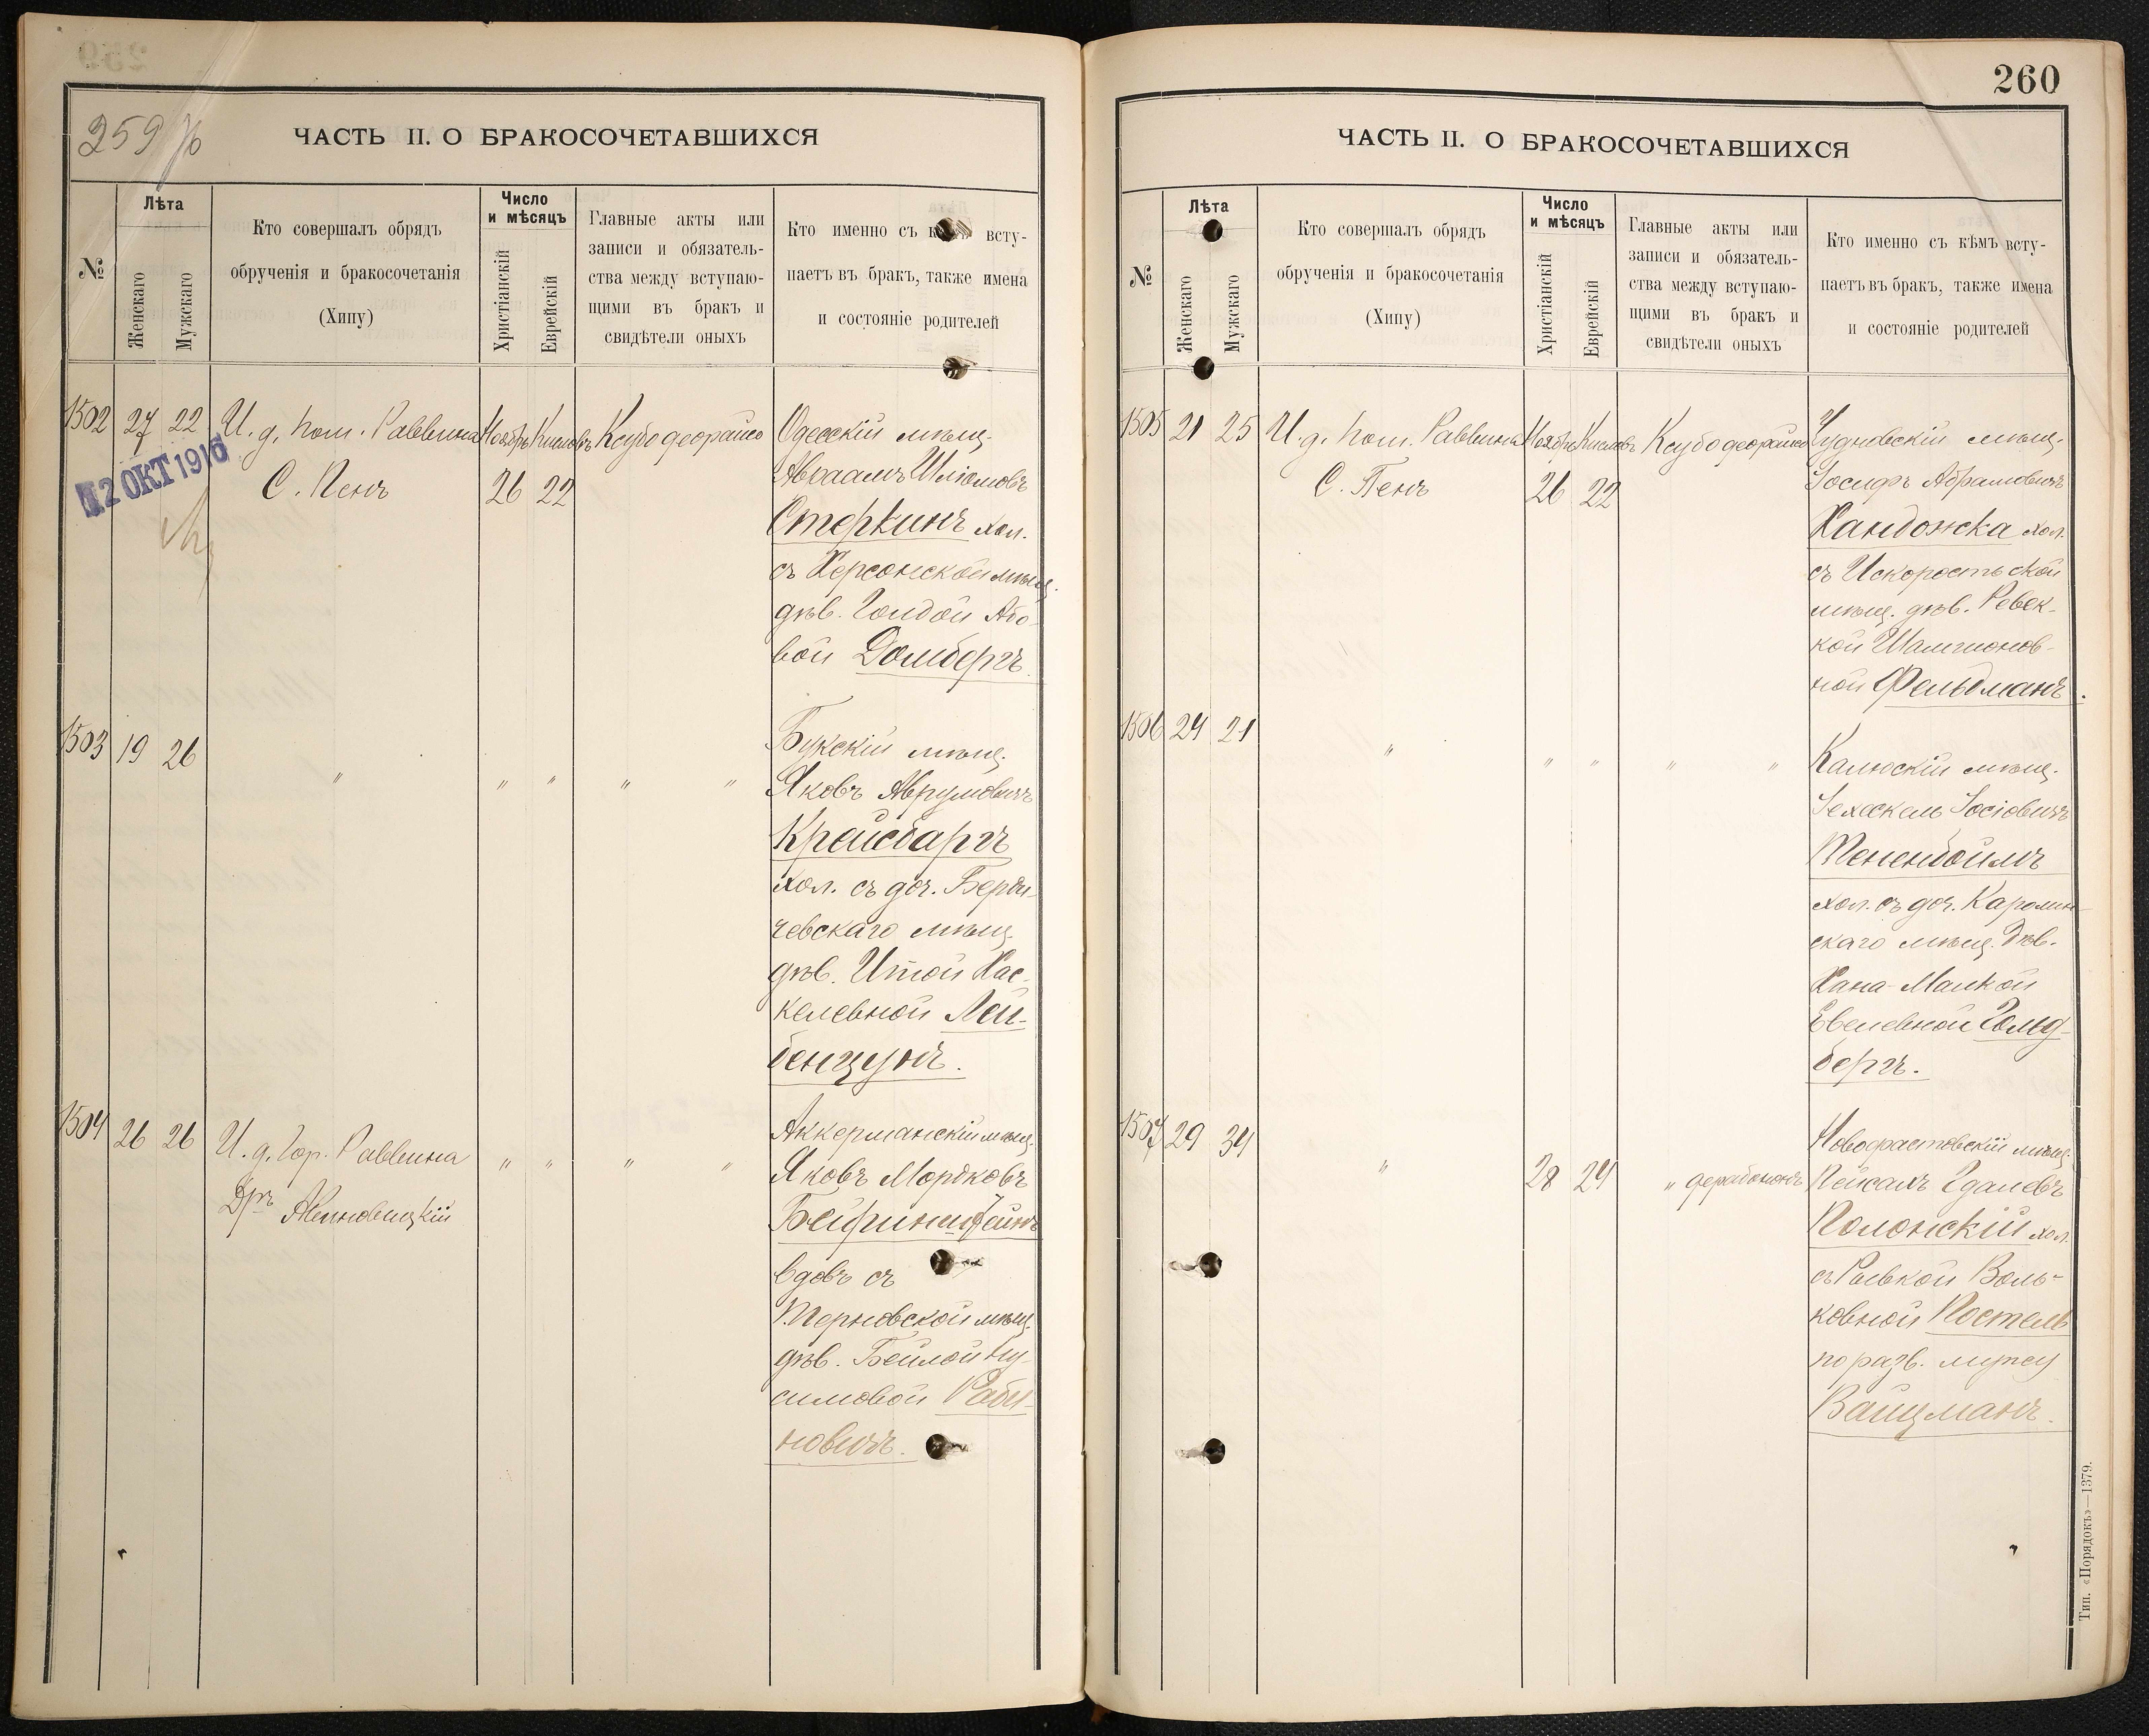 259 %
ЧАСТЬ II. О БРАКОСОЧЕТАВШИХСЯ
№
Лѣта
Женскаго
Мужскаго
Кто совершалъ обрядъ
обрученія и бракосочетанія
(Хипу)
Число
и мѣсяцъ
Христіанскій
Еврейскій
Главные акты или
записи и обязатель-
ства между вступаю-
щими въ бракъ и
свидѣтели оныхъ
Кто именно съ всту-
паетъ въ бракъ, также имена
и состояніе родителей
1502 27 22 И. д. пом. Раввина Ноябрь Кислевъ Ксубо деорайсо Одесскій мѣщ.
12 ОКТ 1916
С. Пенъ 26 22
Авраамъ Шлюмовъ
Стеркинъ хол.
съ Херсонской мѣщ.
дѣв. Голдой Або-
вой Домбергъ.
1503 19 26 " " " " " Букскій мѣщ.
Яковъ Аврумовичъ
Крейсбаргъ
хол. съ доч. Берди-
чевскаго мѣщ.
дѣв. Итой Хас-
келевной Лей-
бенцунъ.
1504 26 26 И. д. Гор. Раввина " " " " Аккерманскій мѣщ.
Дръ Авиновицкій
Яковъ Мордковъ
Вдовъ съ
Терновской мѣщ.
дѣв. Бейлой Ну-
симовой Раби-
новичъ.
260
ЧАСТЬ II. О БРАКОСОЧЕТАВШИХСЯ
№
Лѣта
Женскаго
Мужскаго
Кто совершалъ обрядъ
обрученія и бракосочетанія
(Хипу)
Число
и мѣсяцъ
Христіанскій
Еврейскій
Главные акты или
записи и обязатель-
ства между вступаю-
щими въ бракъ и
свидѣтели оныхъ
Кто именно съ кѣмъ всту-
паетъ въ бракъ, также имена
и состояніе родителей
1505 21 25 И. д. пом. Раввина Ноябрь Кислевъ Ксубо деорайсо Чудновскій мѣщ.
С. Пенъ 26 22
Іосифъ Абрамовичъ
Хандожка хол.
съ Искоростьской
мѣщ. дѣв. Ревек-
кой Шамшонов-
ной Фельдманъ.
1506 24 21 " " " " " Калюскій мѣщ.
Іехескель Іосіовичъ
Тененбоймъ
хол. съ доч. Каролин-
скаго мѣщ. дѣв.
Хана-Малкой
Евелевной Гольд-
бергъ.
1507 29 34 " 28 24 " дерабононъ Новофастовскій мѣщ.
Пейсахъ Гдалевъ
Полонскій хол.
съ Ривкой Воль-
ковной Постель
по разв. мужу
Вайцманъ.
Тип. «Порядокъ»—1379.